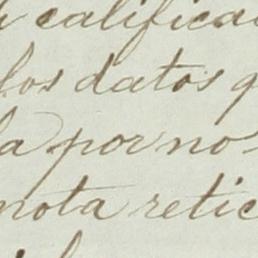 califica
los datos q
la por no-
nota retic